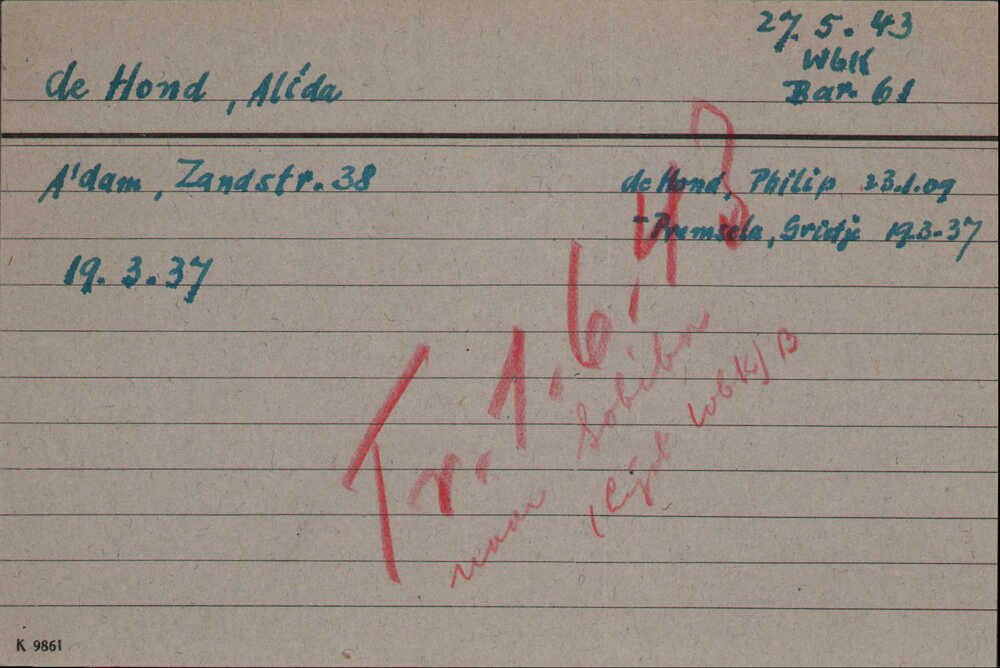 27. 5. 43
WbK
Bar. 61
de Hond, Alida
A'dam, Zandstr. 38
19. 3. 37
de Hond, Philip 23.1.09
- Premsela, Grietje 19.3.37
Tr. 1. 6. 43
naar Sobibor
(lijst WbK) B
K 9861